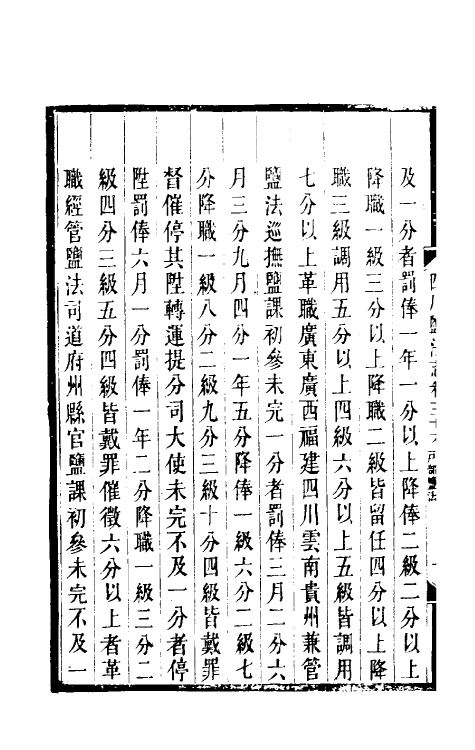 及一分者罰俸一年一分以上降俸二級二分以上
降職一級三分以上降職二級皆留任四分以上降
職三級調用五分以上四級六分以上五級皆調用
七分以上革職廣東廣西福建四川雲南貴州兼管
鹽法巡撫鹽課初參未完一分者罰俸三月二分六
月三分九月四分一年五分降俸一級六分二級七
分降職一級八分二級九分三級十分四級皆戴罪
督催停其陞轉運提分司大使未完不及一分者停
陞罰俸六月一分罰俸一年二分降職一級三分二
級四分三級五分四級皆戴罪催徵六分以上者革
職經管鹽法司道府州縣官鹽課初參未完不及一
四川鹽法志卷三十
戶部鹽法